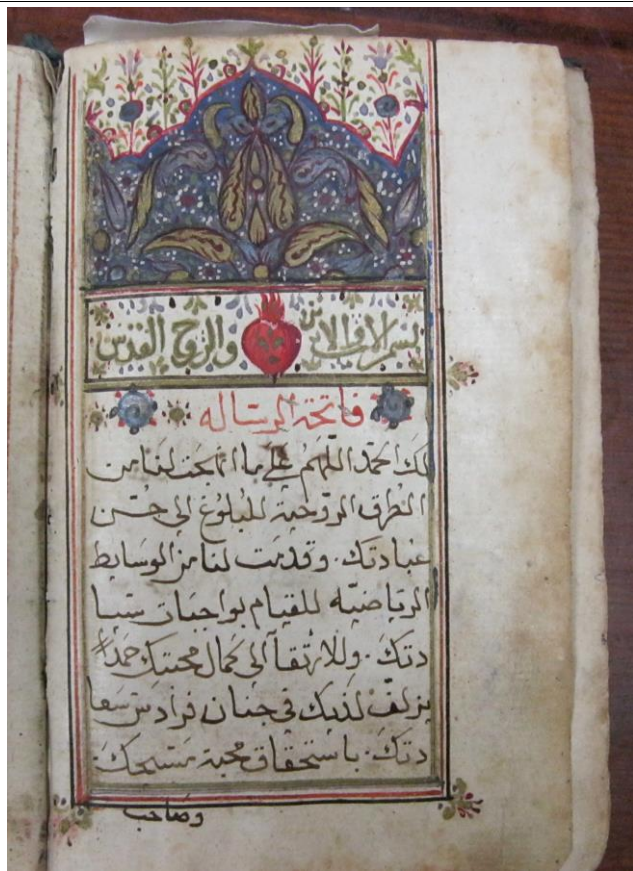 بسم الاب والابن والروح القدس
فاتحة الرساله
لك الحمد اللهم على ما انهجت لنا من
الطرق الروحية للبلوغ الى حسن
عبادتك. وقدمت لنا من الوسايط
الرياضيه للقيام بواجبات سيا
دتك. وللارتقآ الى كمال محبتك حمدًا
يزلف لديك في جنان فراديس سعا
دتك. باستحقاق محبة مسيحك
وصاحب